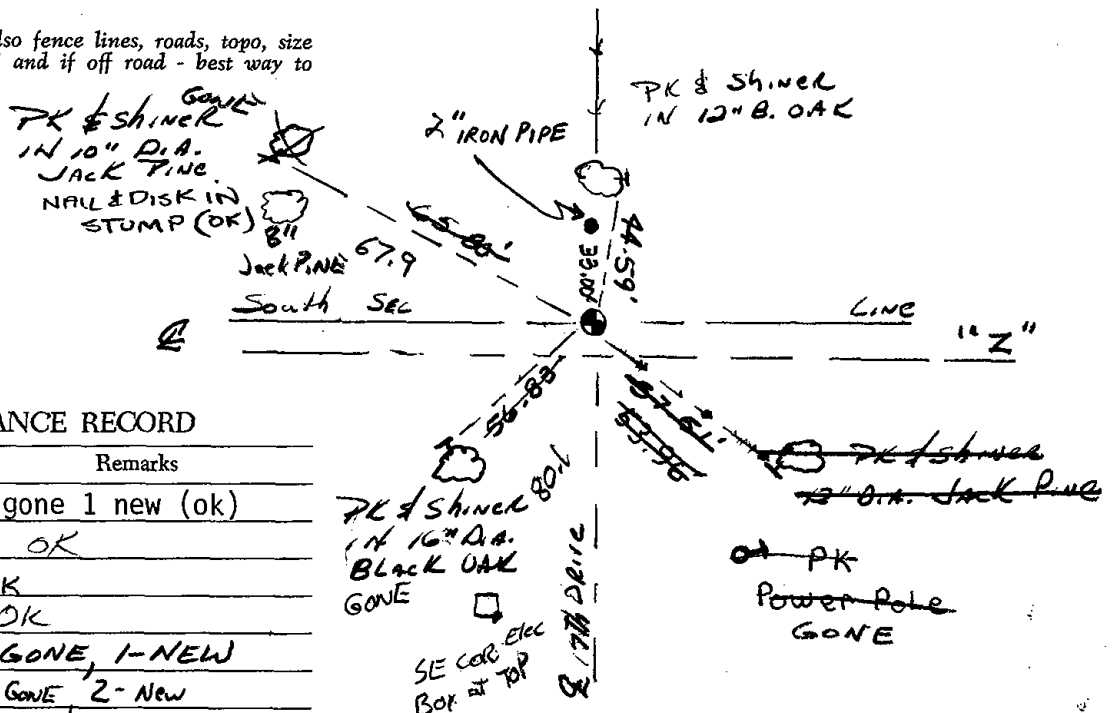 lso fence lines, roads, topo, size
and if off road - best way to
GONE
PK & SHINER
IN 10" DIA.
JACK PINE
NAIL & DISK IN
STUMP (OK)
8"
Jack PINE
67.9
2" IRON PIPE
PK & SHINER
IN 12" B. OAK
33.00
44.59'
South SEC LINE
℄
"Z"
56.83
57.61'
53.96
PK & SHINER
IN 16" DIA.
BLACK OAK
GONE
80.1
SE COR. Elec
Box at TOP
℄ 17th DRIVE
PK & Shiner
12" DIA. JACK PINE
PK
Power Pole
GONE
ANCE RECORD
Remarks
gone 1 new (ok)
OK
K
OK
GONE, 1-NEW
GONE, 2-New